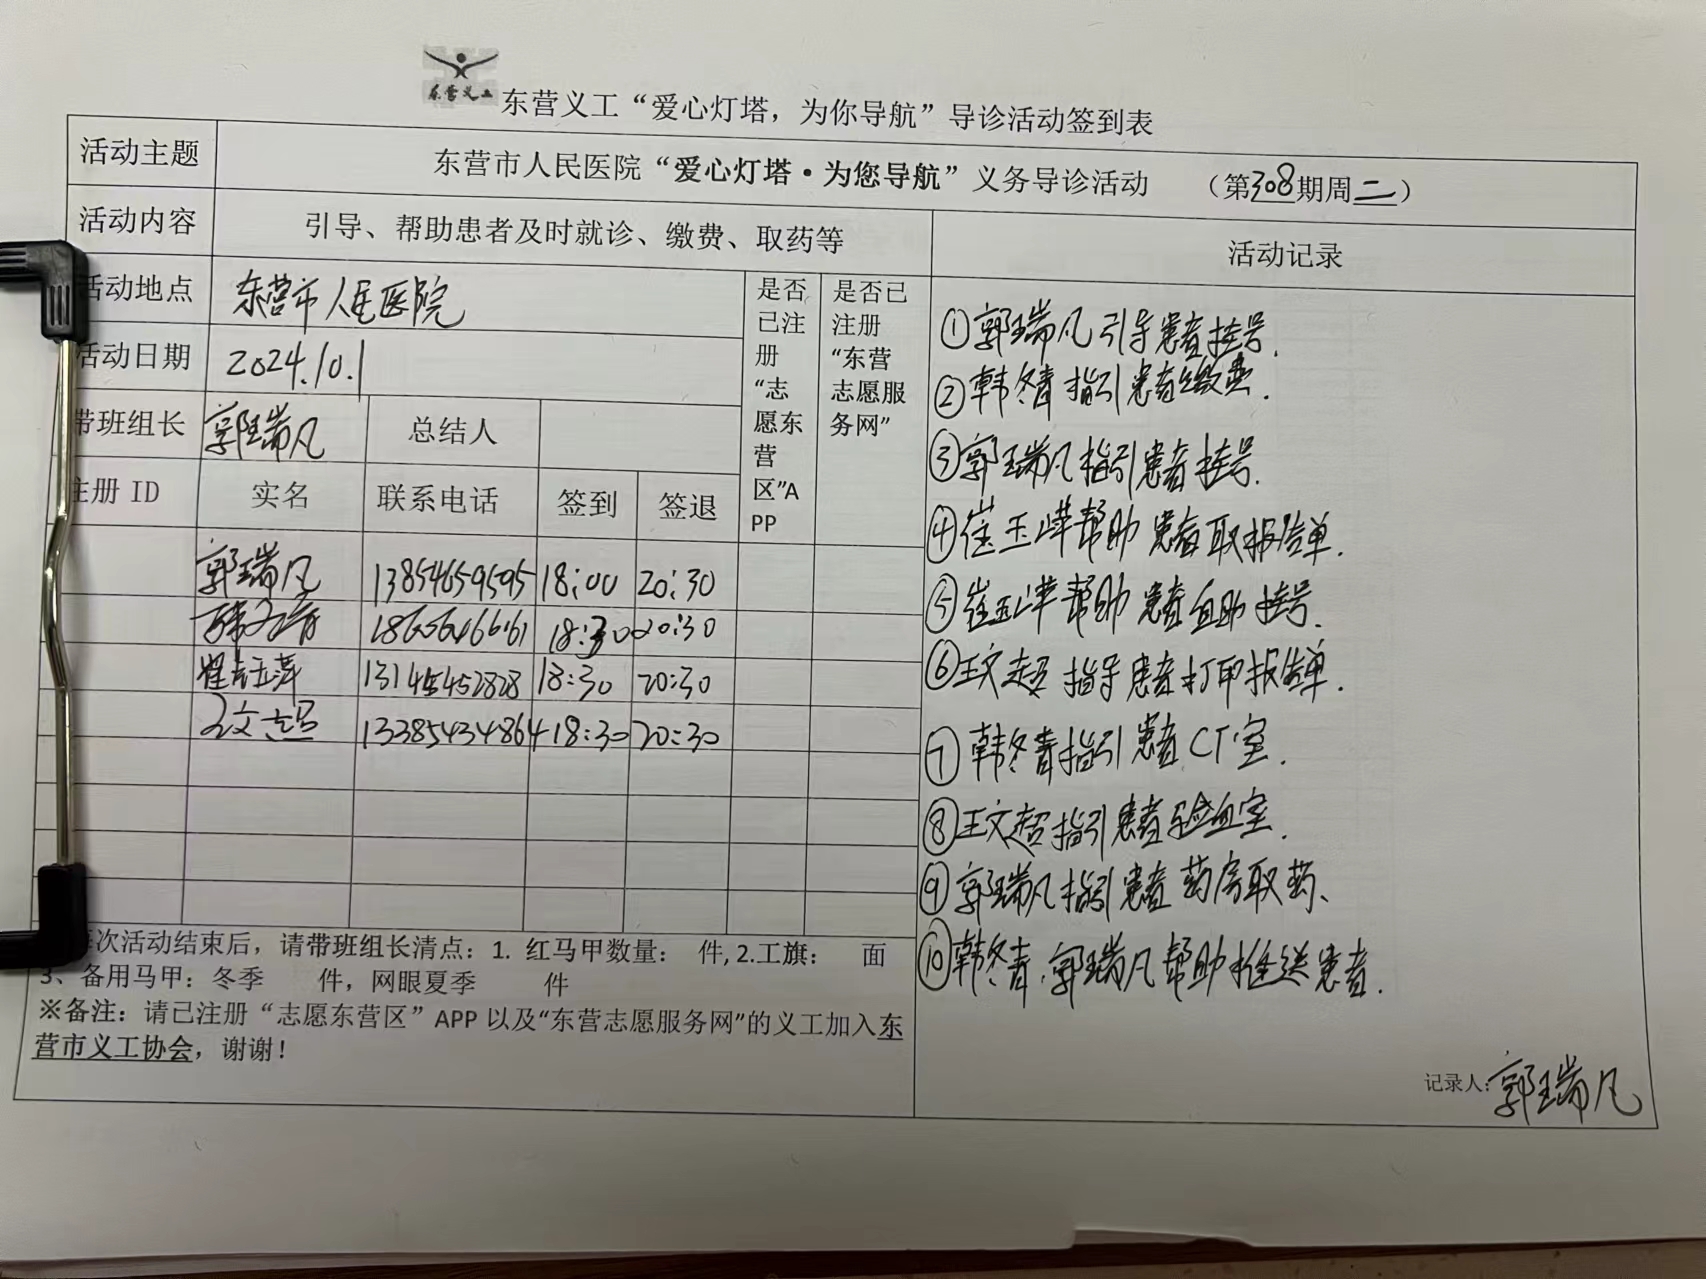 东营义工
东营义工“爱心灯塔，为你导航”导诊活动签到表
活动主题 东营市人民医院“爱心灯塔·为您导航”义务导诊活动 （第308期周二）
活动内容 引导、帮助患者及时就诊、缴费、取药等 活动记录
活动地点 东营市人民医院
活动日期 2024.10.1
带班组长 郭瑞凡 总结人
注册 ID 实名 联系电话 签到 签退
是否已注册“志愿东营区”APP
是否已注册“东营志愿服务网”
郭瑞凡 13854659595 18:00 20:30
韩冬青 18656466161 18:30 20:30
崔玉萍 13145452828 18:30 20:30
王文超 13385434864 18:30 20:30
每次活动结束后，请带班组长清点：1. 红马甲数量： 件, 2.工旗： 面
3、备用马甲：冬季 件，网眼夏季 件
※备注：请已注册“志愿东营区”APP 以及“东营志愿服务网”的义工加入东
营市义工协会，谢谢！
①郭瑞凡引导患者挂号.
②韩冬青指引患者缴费.
③郭瑞凡指引患者挂号.
④崔玉萍帮助患者取报告单.
⑤崔玉萍帮助患者自助挂号.
⑥王文超指导患者打印报告单.
⑦韩冬青指引患者CT室.
⑧王文超指引患者验血室.
⑨郭瑞凡指引患者药房取药、
⑩韩冬青、郭瑞凡帮助推送患者.
记录人：郭瑞凡